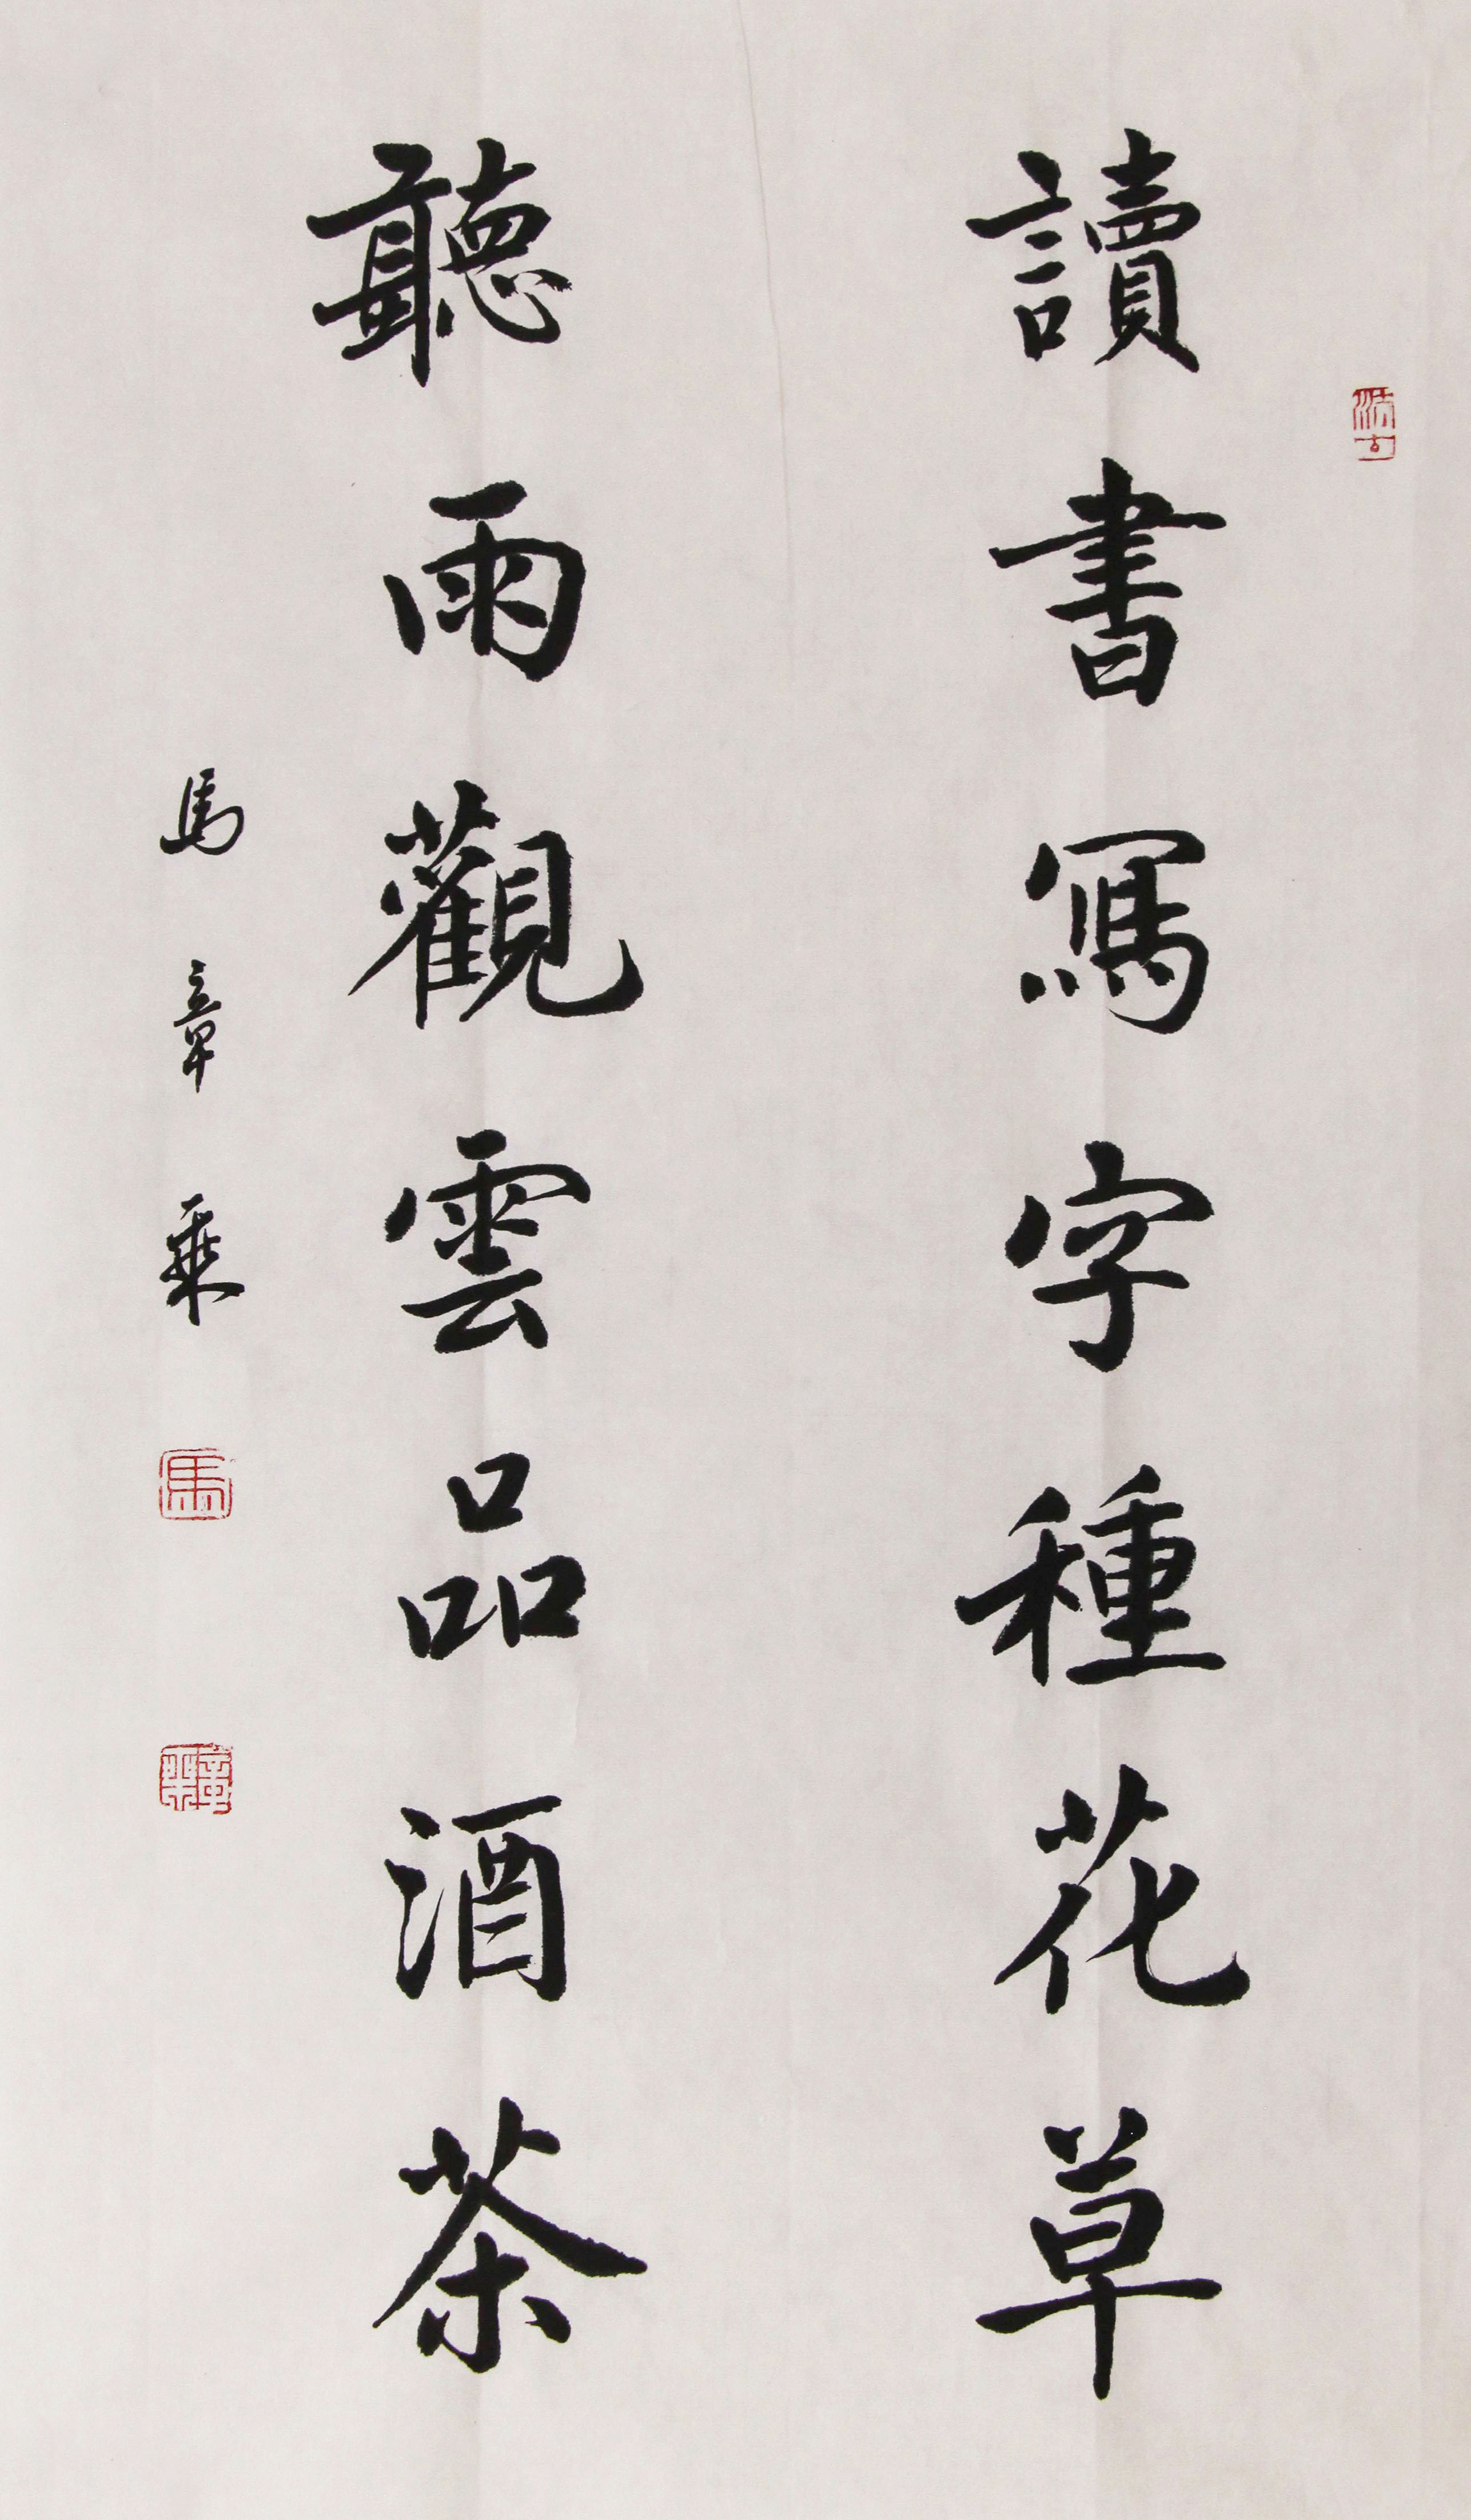 讀書寫字種花草
聽雨觀雲品酒茶
馬章乘
馬
章乘